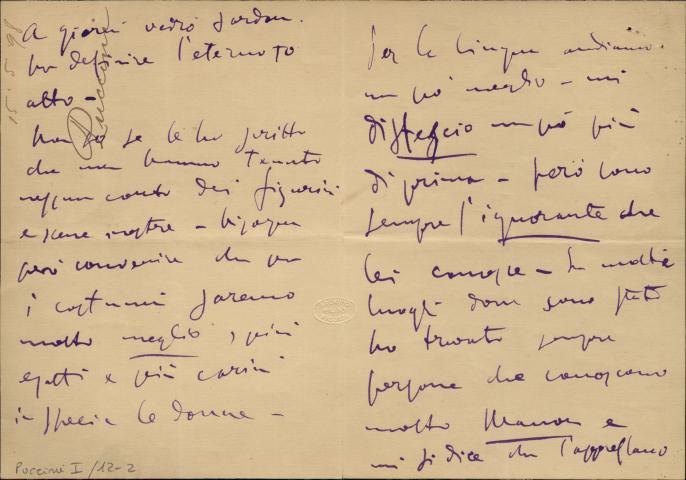 15.5.98
Puccini
A giorni vedrò Sardou.
ho definire l'eterno 10
atto –
Non so se le ho scritto
che non hanno tenuto
nessun conto dei figurini
e scene nostre – bisogna
però convenire che per
i costumi saremo
molto meglio, più
esatti e più carini
in specie le donne –
Puccini I/12-2
Per la lingua andiamo
un pò meglio – mi
districcio un pò più
di prima – però sono
sempre l'ignorante che
lei conosce – In molti
luoghi dove sono stato
ho trovato sempre
persone che conoscono
molto Manon e
mi si dice che l'apprestano